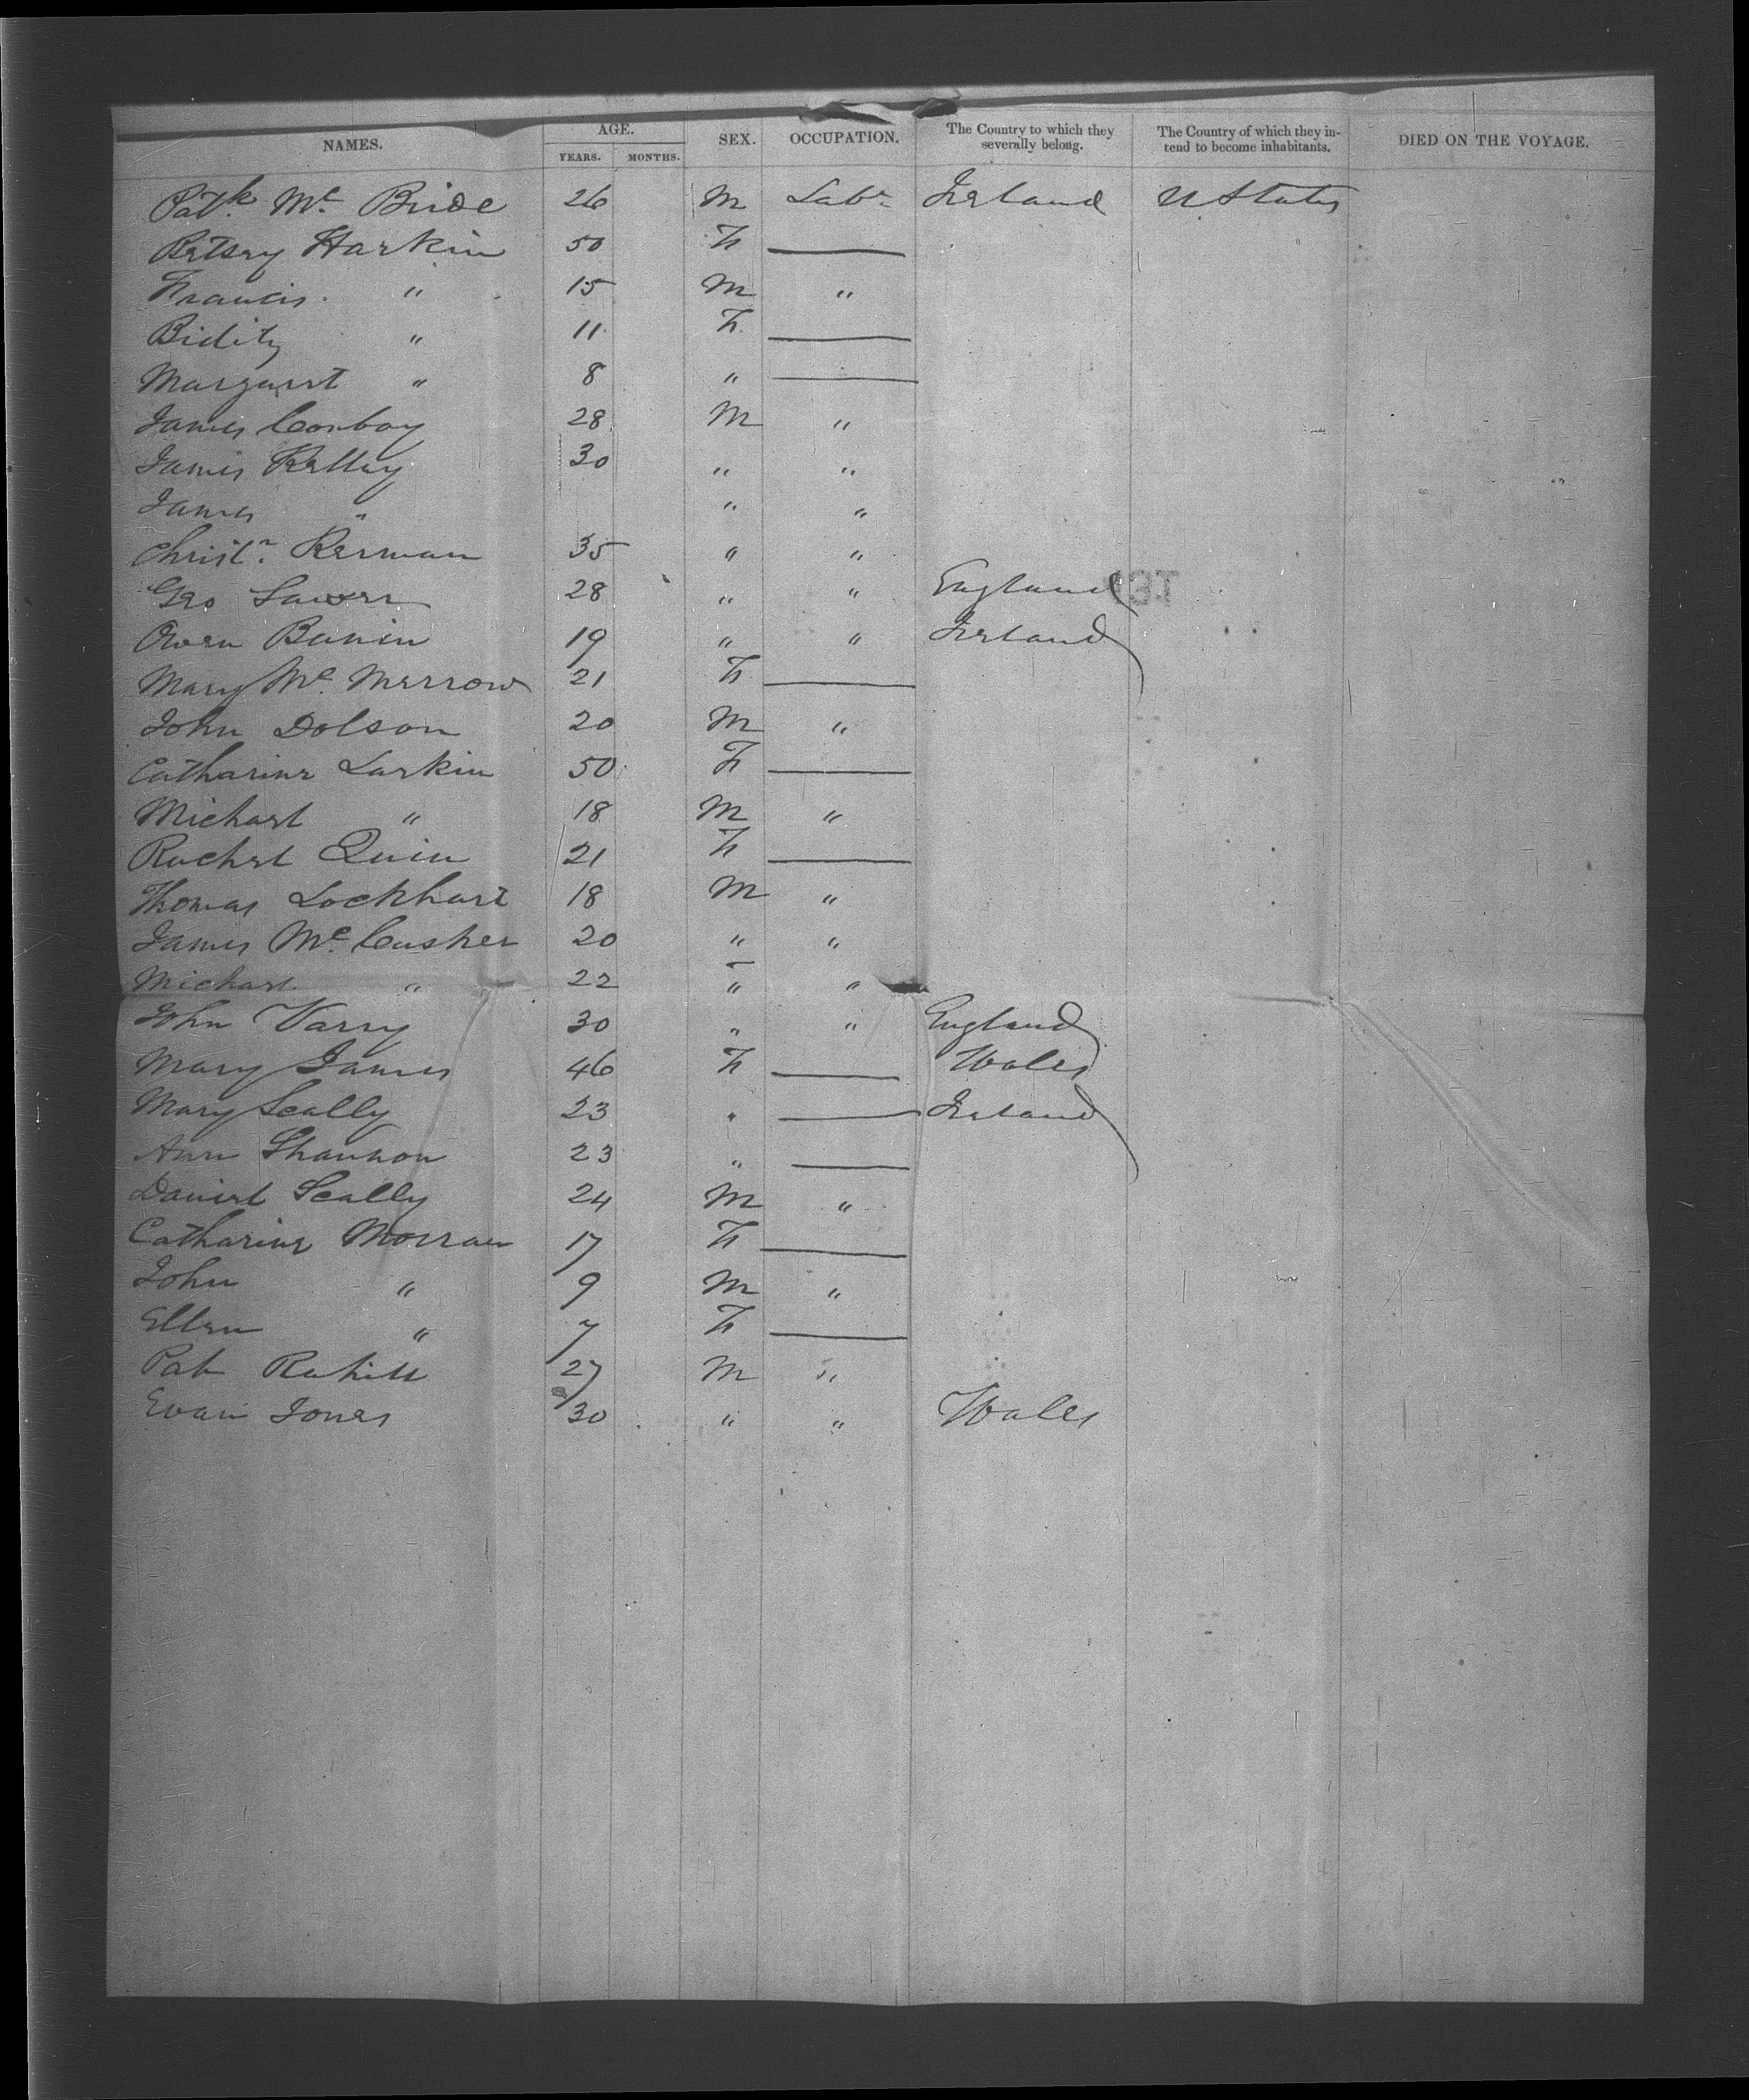 NAMES. AGE. SEX. OCCUPATION. The Country to which they severally belong. The Country of which they intend to become inhabitants. DIED ON THE VOYAGE.
YEARS. MONTHS.
Patk. Mc. Bride 26 M Labr Ireland U States
Betsey Harkin 50 F
Francis " 15 M "
Bidity " 11 F
Margaret " 8 "
James Conboy 28 M "
James Kelley 30 " "
James " " "
Christn. Kerman 35 " "
Geo 28 " " England
Owen Banin 19 " " Ireland
Mary Mc. Merrow 21 F
John Dolson 20 M "
Catharine Larkin 50 F
Michael " 18 M "
Rachel Quin 21 F
Thomas Lockhart 18 M "
James Mc. Cusker 20 " "
Michael " 22 " "
John Varry 30 " " England
Mary James 46 F Wales
Mary Scally 23 " Ireland
Ann Shannon 23 "
Daniel Scally 24 M "
Catharine Morran 17 F
John " 9 M "
Ellen " 7 F
Pat Rahill 27 M "
Evan Jones 30 " " Wales